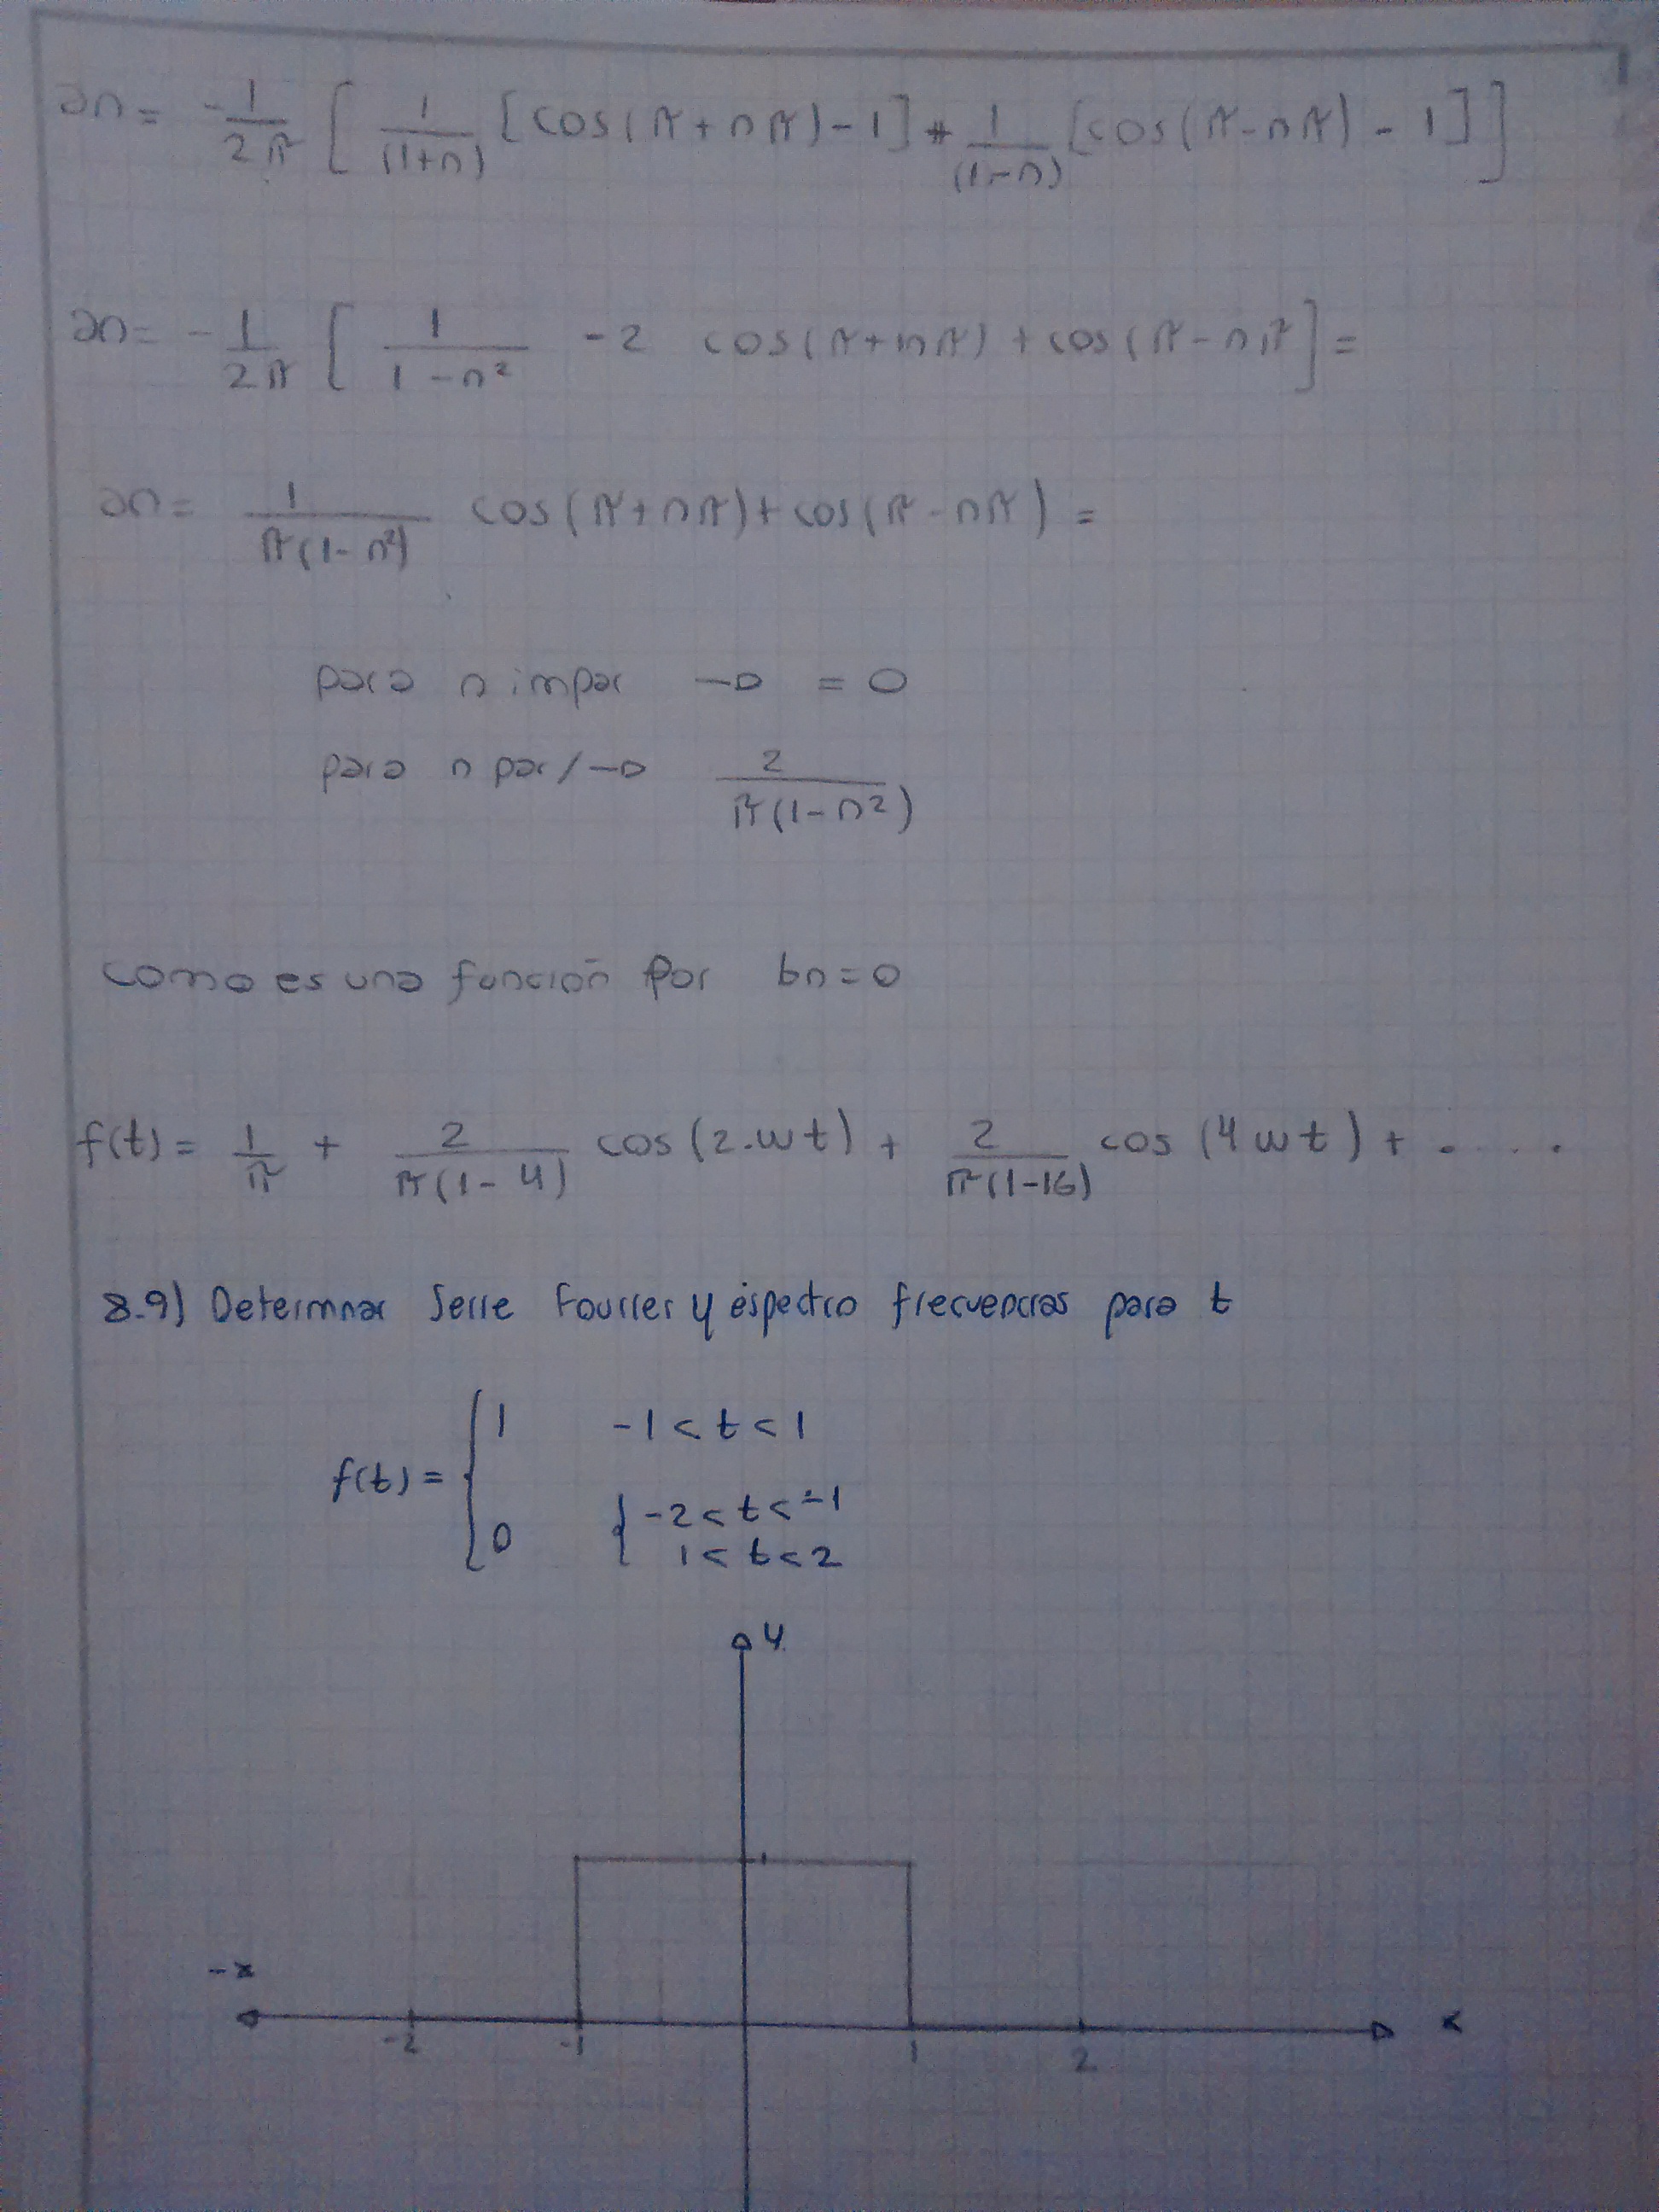 an = -1/2π [ 1/(1+n) [cos(π+nπ)-1] + 1/(1-n) [cos(π-nπ) - 1]]
an = -1/2π [ 1/1-n² -2 cos(π+nπ) + cos(π-nπ] =
an = 1/π(1-n²) cos(π+nπ)+cos(π-nπ) =
para n impar → = 0
para n par/→ 2/π(1-n²)
como es una función Par bn=0
f(t) = 1/π + 2/π(1-4) cos(2.wt) + 2/π(1-16) cos(4wt) + .....
8.9) Determinar Serie Fourier y espectro frecuencias para t
f(t) = { 1 -1<t<1
0 { -2<t<-1
1<t<2
y
1
-x x
-2 -1 1 2